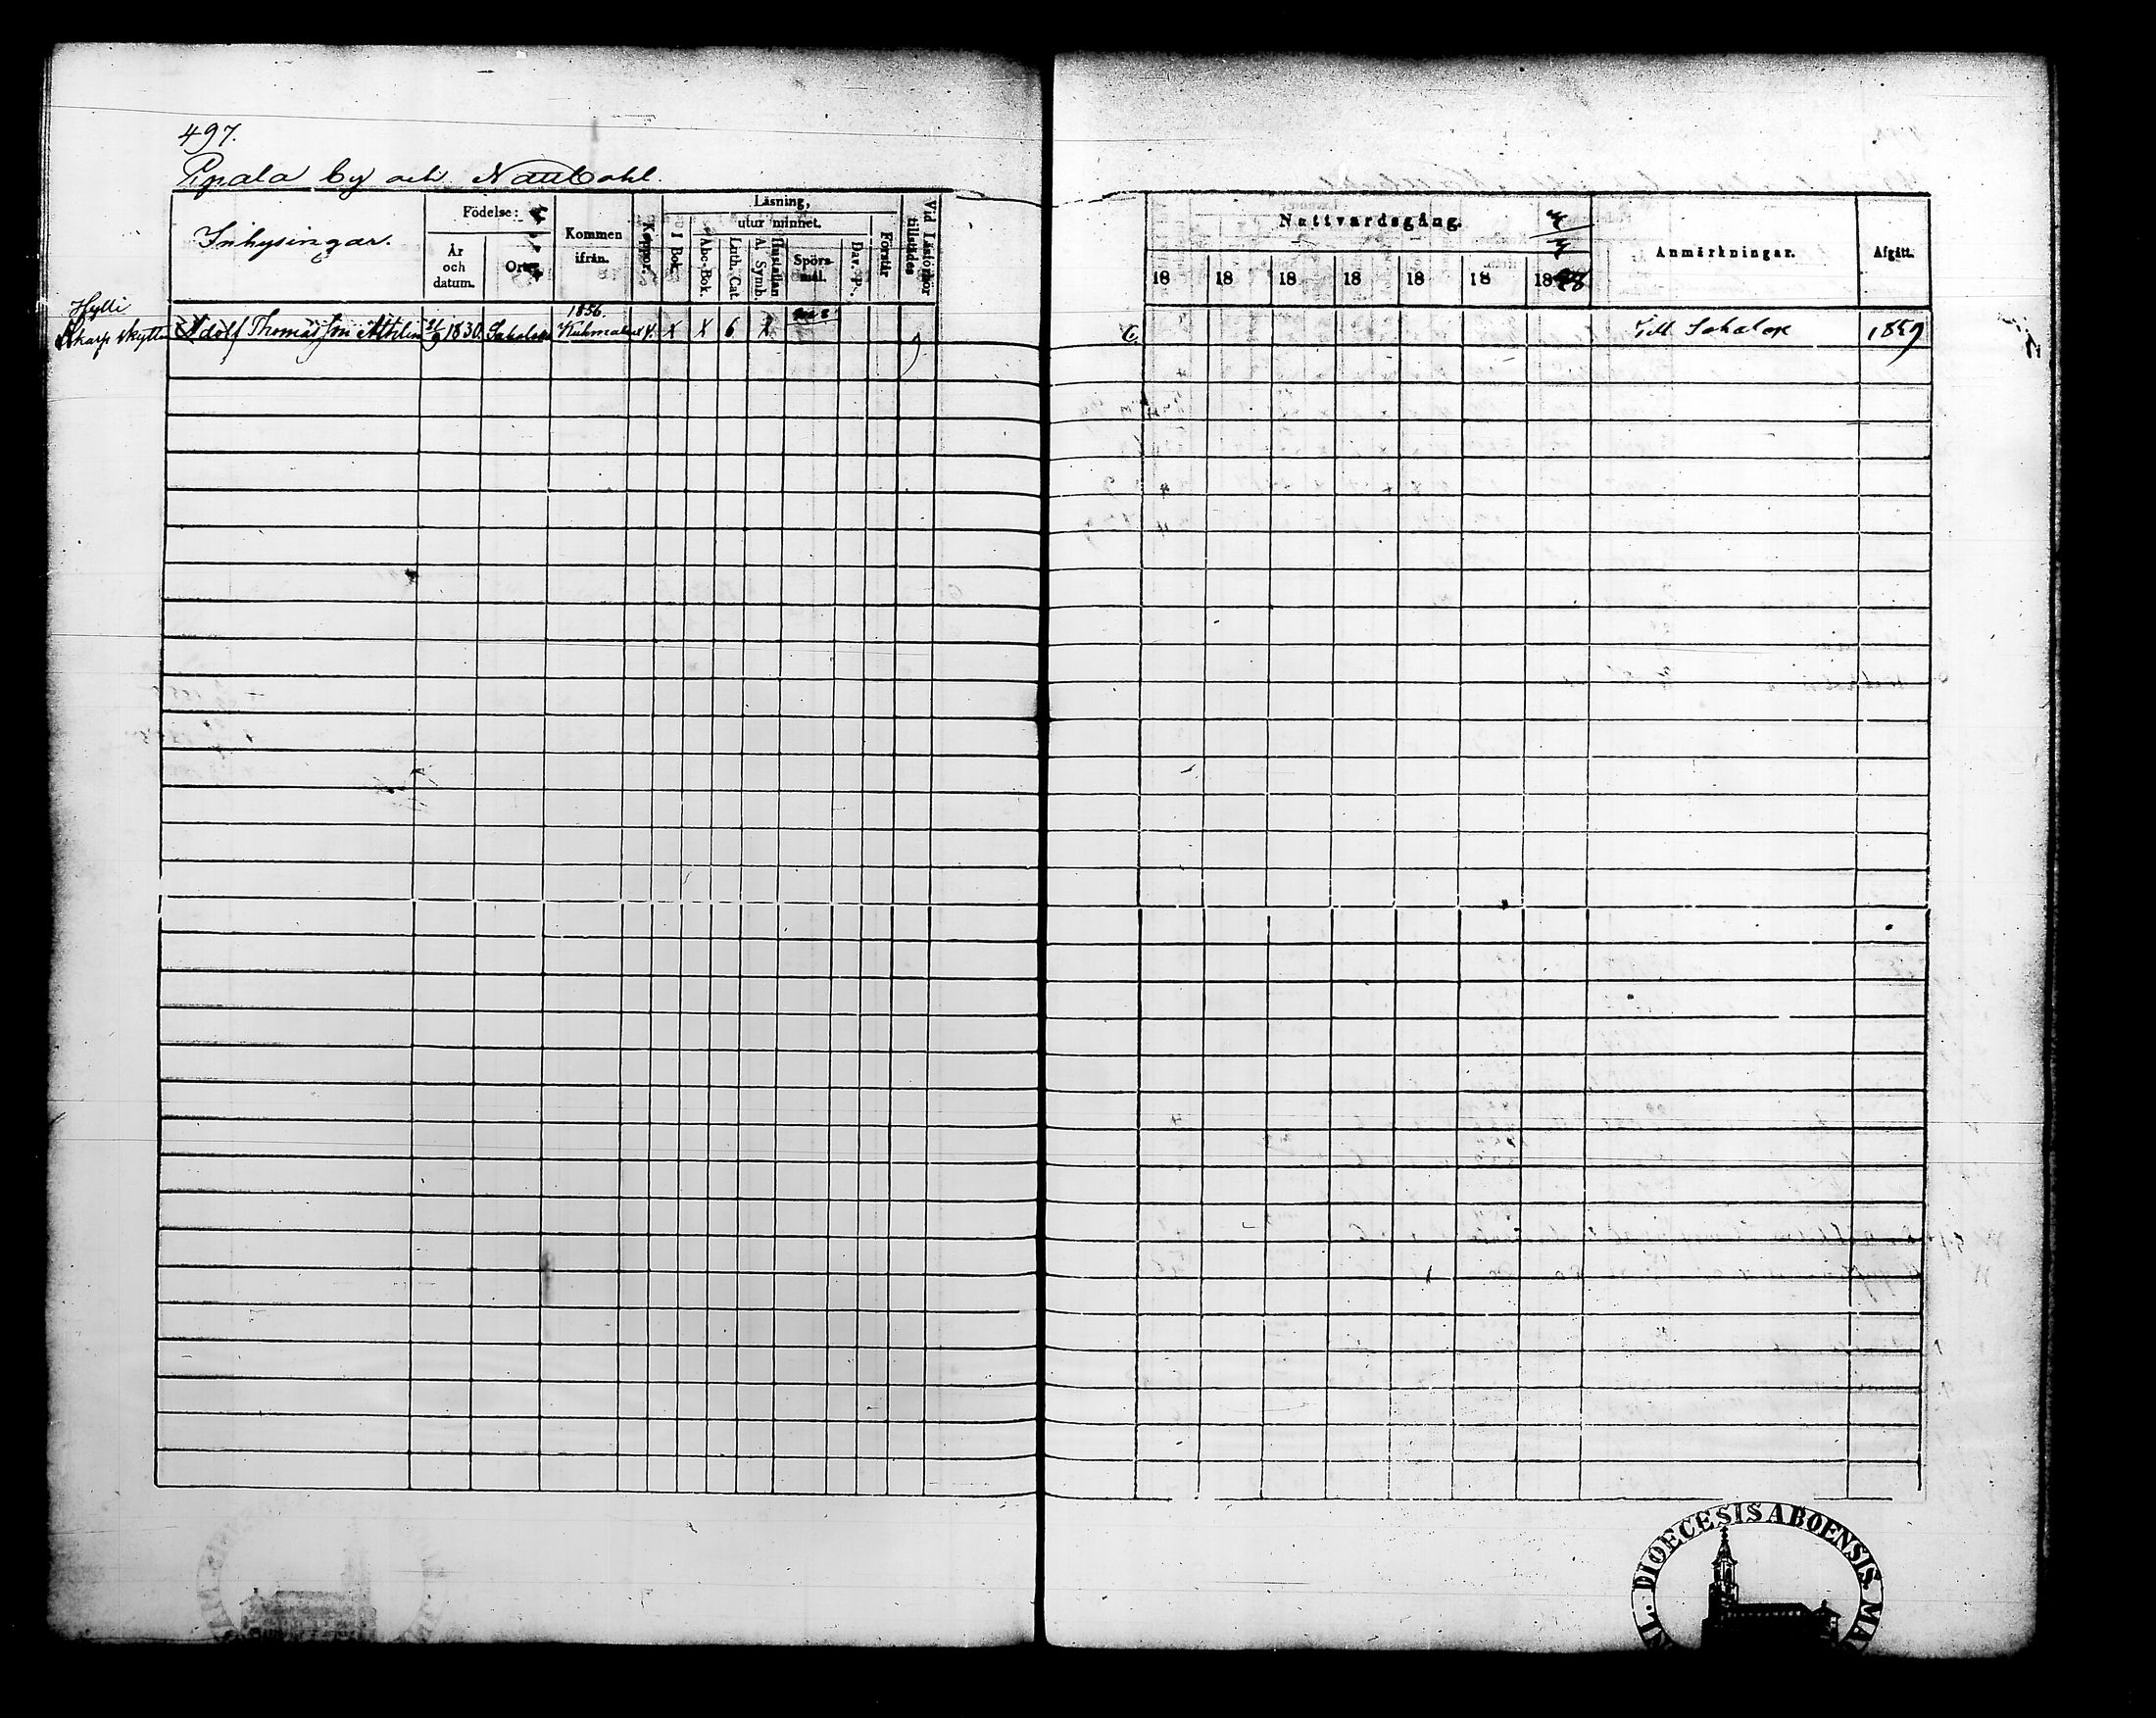 497.
Pipala by och
Inhysingar.
Födelse:
År och datum.
Ort.
Kommen ifrån.
Koppor.
Läsning,
I Bok.
utur minnet.
Abc-Bok.
Luth. Cat.
Hustaflan A. Symb.
Spörsmål.
Dav. P.
Förstår
Vid Läsförhör tillstädes
Nattvardsgång.
18 18 18 18 18 18 18
Anmärkningar.
Afgått.
Hylli
1856.
Skarpskytten Adolf Thomasson 1830. Sahalax Kuhmalax v. x x 6 x
Till Sahalax 1859
DIOECESIS ABOENSIS